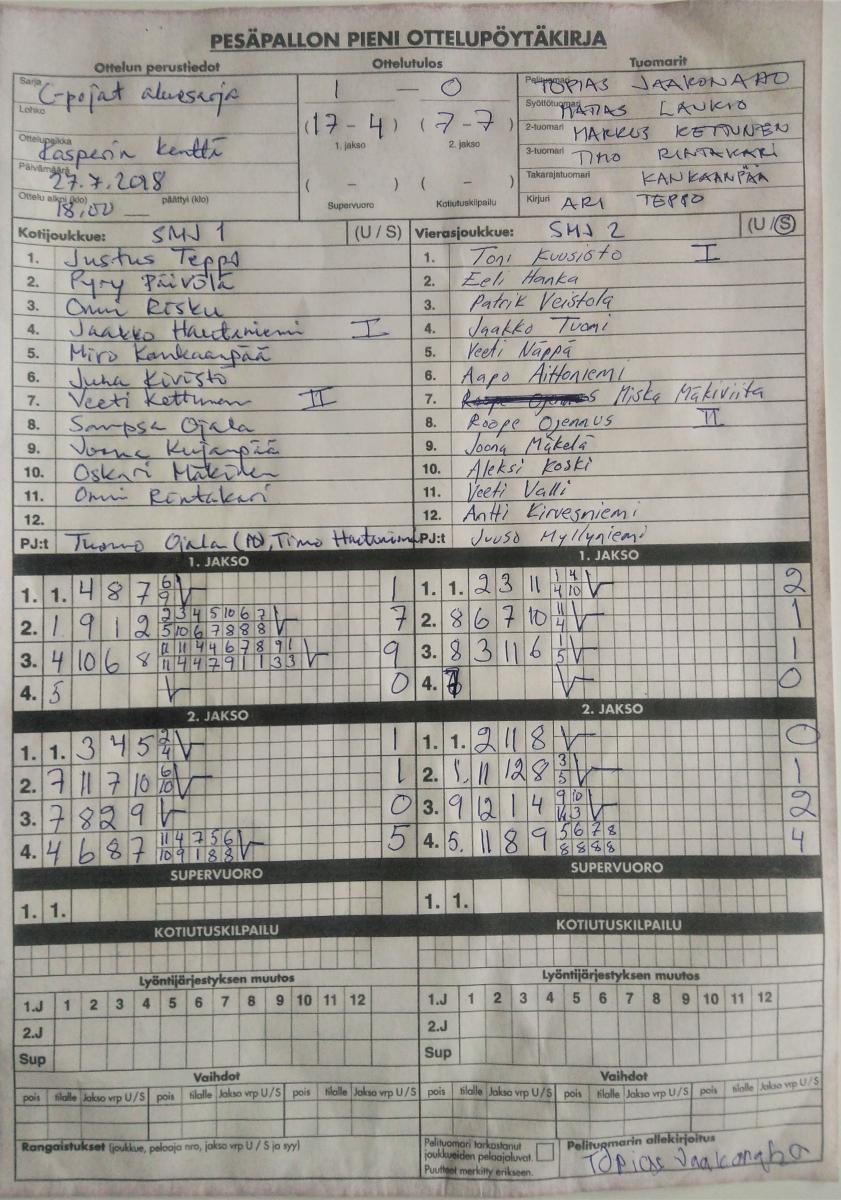 PESÄPALLON PIENI OTTELUPÖYTÄKIRJA
Ottelun perustiedot
Ottelutulos
Tuomarit
Sarja C-pojat aluesarja
Lohko
Ottelupaikka Kasperin kenttä
Päivämäärä 27.7.2018
Ottelu alkoi (klo) 18,00 päättyi (klo)
1 — 0
(17 - 4) (7 - 7)
1. jakso 2. jakso
( - ) ( - )
Supervuoro Kotiutuskilpailu
Pelituomari TOPIAS JAAKONAHO
Syöttötuomari MATIAS LAUKIO
2-tuomari MARKUS KETTUNEN
3-tuomari TIMO RINTAKARI
Takarajatuomari KANKAANPÄÄ
Kirjuri ARI TEPPO
Kotijoukkue: SMJ 1 (U / S)
1. Justus Teppo
2. Pyry Päivölä
3. Onni Risku
4. Jaakko Hautaniemi I
5. Miro Kankaanpää
6. Juha Kivistö
7. Veeti Kettunen II
8. Sampsa Ojala
9. Joona Kujanpää
10. Oskari Mäkinen
11. Onni Rintakari
12.
PJ:t Tuomo Ojala Timo Hautaniemi
Vierasjoukkue: SMJ 2 (U / S)
1. Toni Kuusisto I
2. Eeli Hanka
3. Patrik Veistola
4. Jaakko Tuomi
5. Veeti Näppä
6. Aapo Aittoniemi
7. Miska Mäkiviita
8. Roope Ojennus II
9. Joona Mäkelä
10. Aleksi Koski
11. Veeti Valli
12. Antti Kirvesniemi
PJ:t Juuso Myllyniemi
1. JAKSO
1. 1. 4 8 7 6 1
9
2. 1 9 1 2 2 3 4 5 10 6 7 7
5 10 6 7 8 8 8
3. 4 10 6 8 11 11 4 4 6 7 8 9 1 9
11 4 4 7 9 1 1 3 3
4. 5 0
1. JAKSO
1. 1. 2 3 11 1 4 2
4 10
2. 8 6 7 10 11 1
4
3. 8 3 11 6 1 1
5
4. 0
2. JAKSO
1. 1. 3 4 5 2 1
4
2. 7 11 7 10 6 1
10
3. 7 8 2 9 0
4. 4 6 8 7 11 4 7 5 6 5
10 9 1 8 8
2. JAKSO
1. 1. 2 11 8 0
2. 1. 11 12 8 3 1
5
3. 9 12 1 4 9 10 2
3
4. 5. 11 8 9 5 6 7 8 4
8 8 8 8
SUPERVUORO
1. 1.
SUPERVUORO
1. 1.
KOTIUTUSKILPAILU
KOTIUTUSKILPAILU
Lyöntijärjestyksen muutos
1.J 1 2 3 4 5 6 7 8 9 10 11 12
2.J
Sup
Lyöntijärjestyksen muutos
1.J 1 2 3 4 5 6 7 8 9 10 11 12
2.J
Sup
Vaihdot
pois tilalle Jakso vrp U/S pois tilalle Jakso vrp U/S pois tilalle Jakso vrp U/S
Vaihdot
pois tilalle Jakso vrp U/S pois tilalle Jakso vrp U/S pois tilalle Jakso vrp U/S
Rangaistukset (joukkue, pelaaja nro, jakso vrp U / S ja syy)
Pelituomari tarkastanut
joukkueiden pelaajaluvat.
Puutteet merkitty erikseen.
Pelituomarin allekirjoitus
Topias Jaakonaho